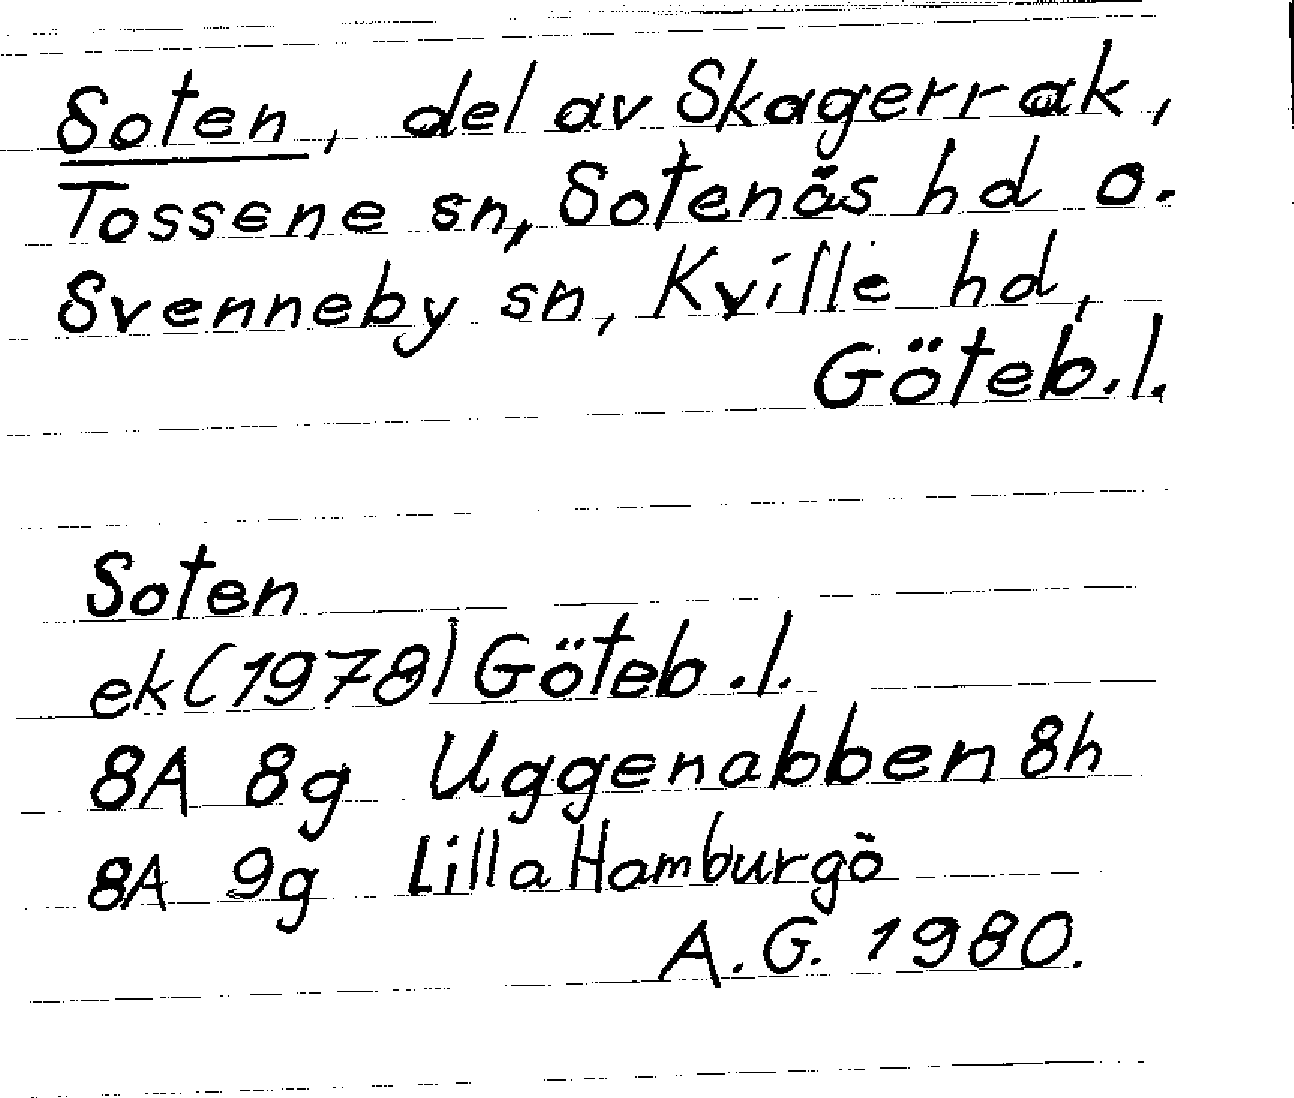 Soten, del av Skagerrak,
Tossene sn, Sotenäs hd o.
Svenneby sn, Kville hd,
Göteb.l.
Soten
ek(1978) Göteb.l.
8A 8g Uggenabben 8h
8A 9g Lilla Hamburgö
A.G. 1980.